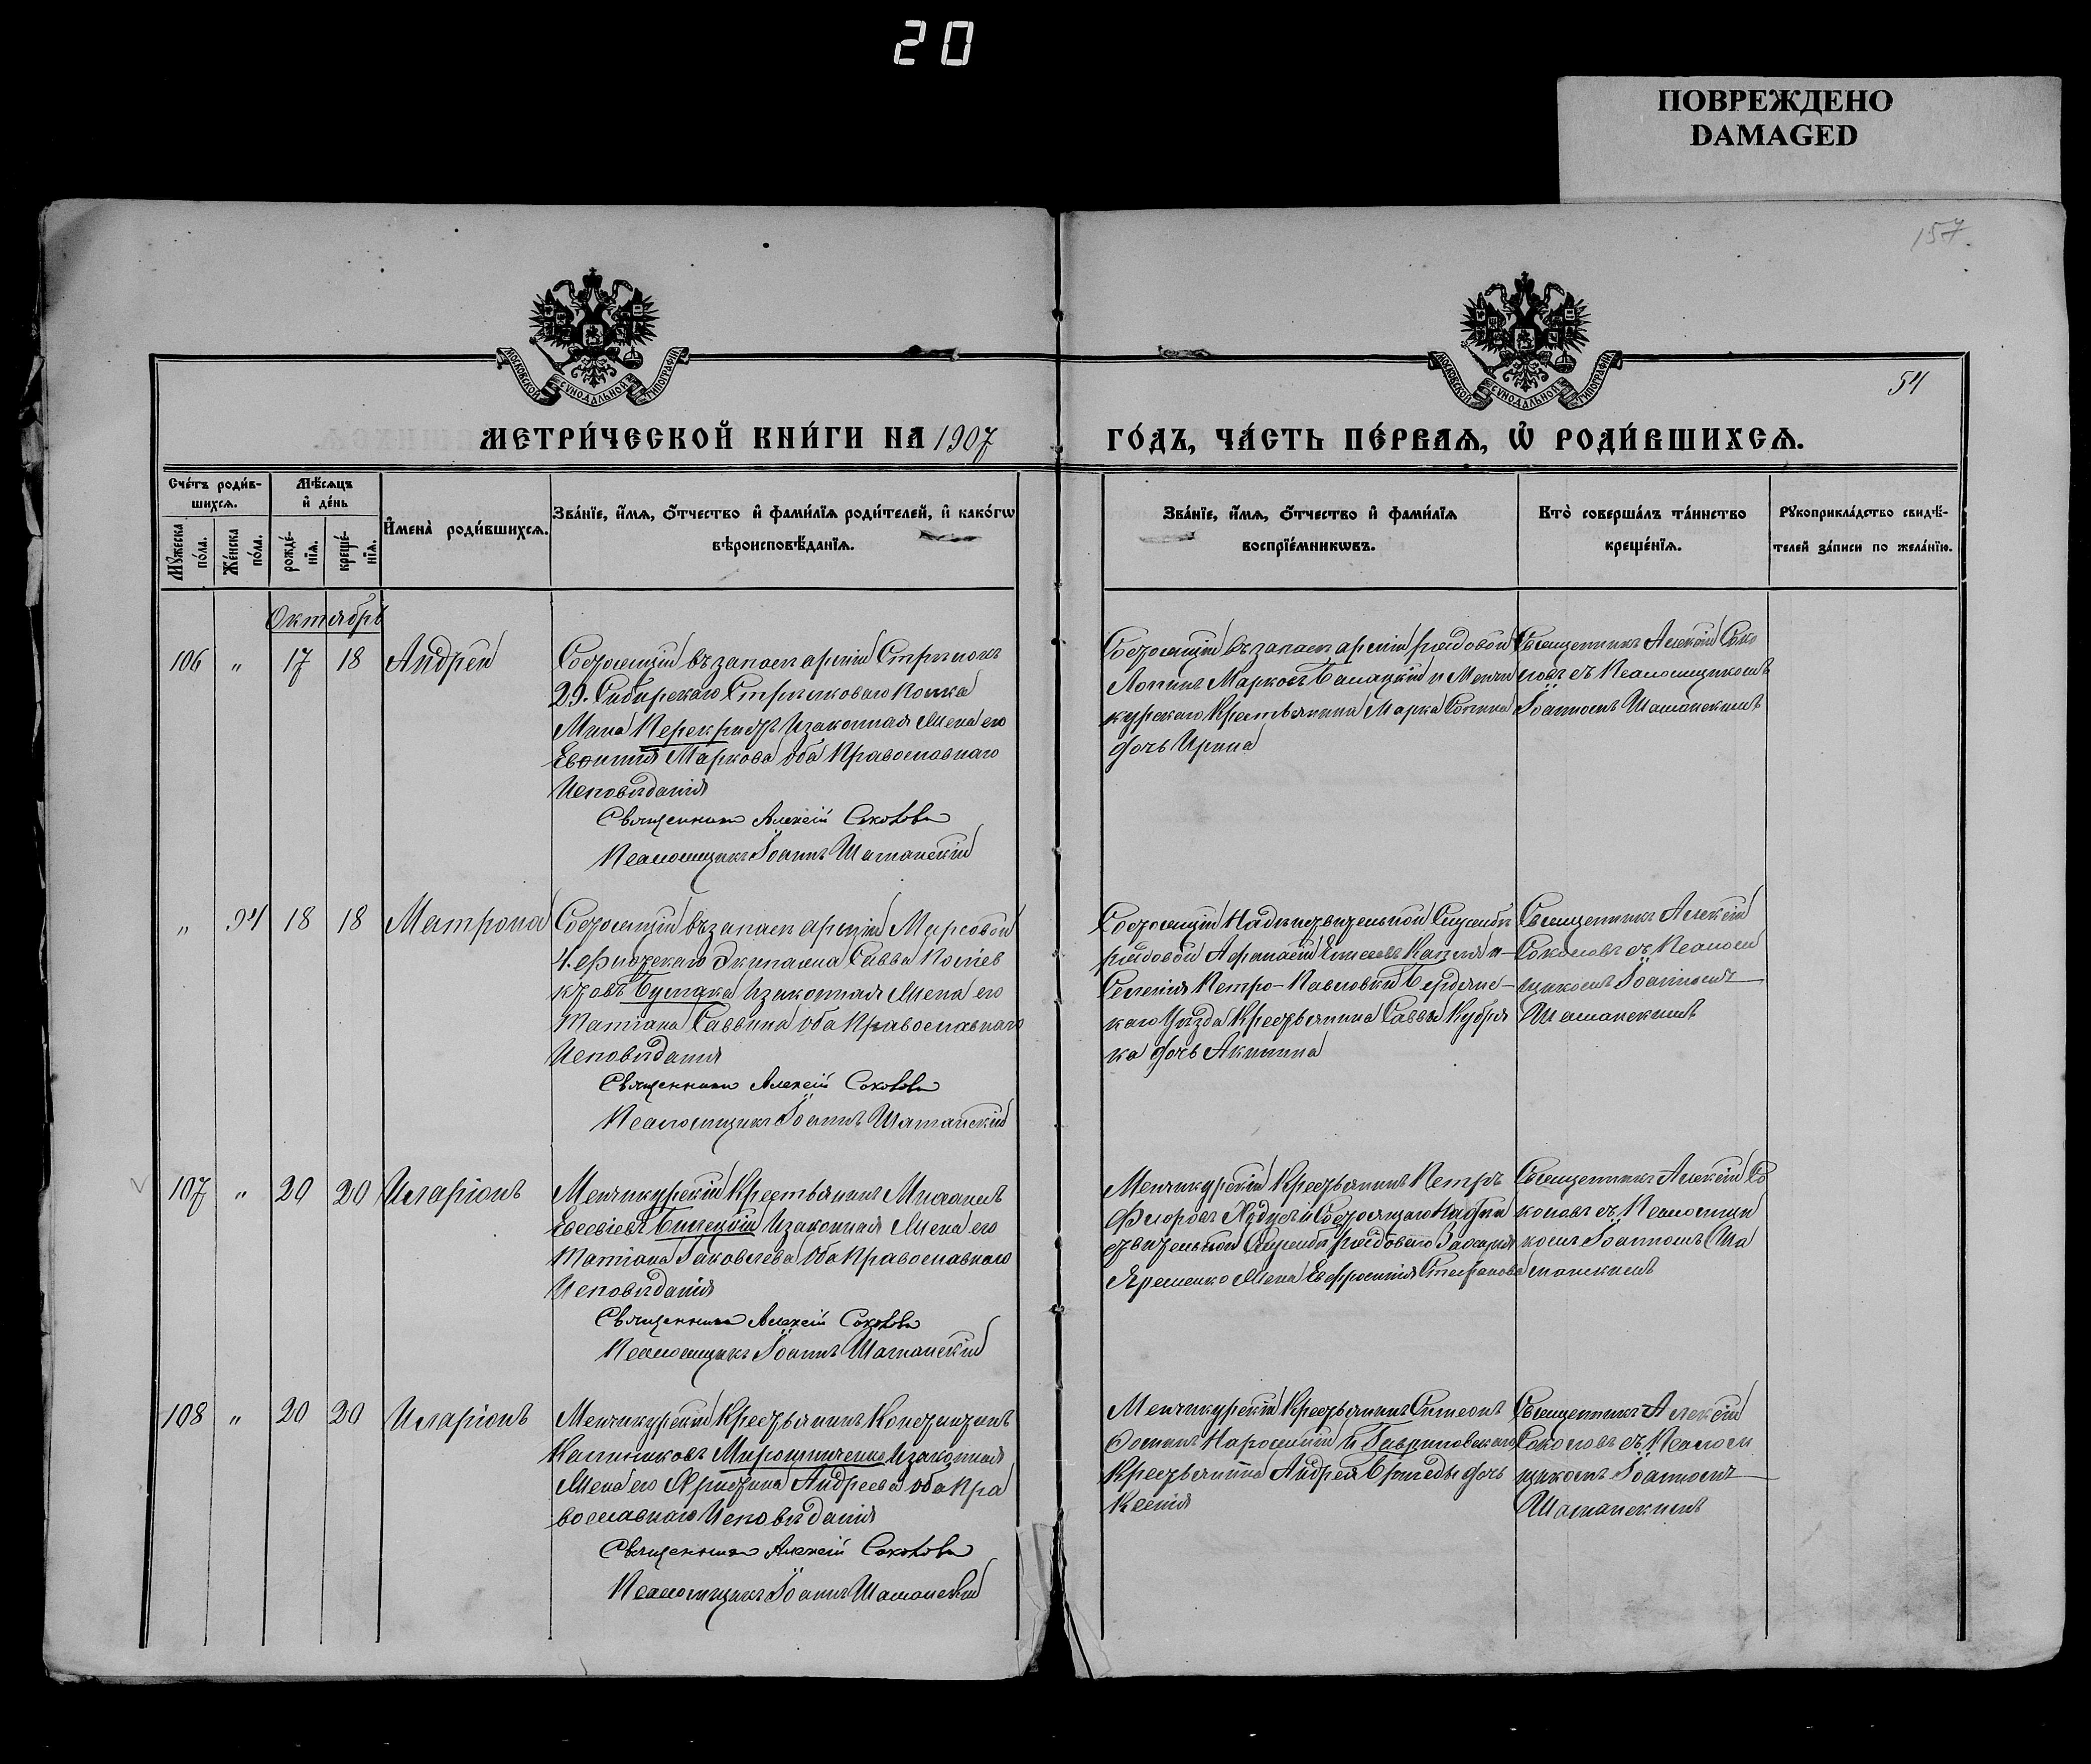 20
ПОВРЕЖДЕНО
DAMAGED
157.
МОСКОВСКОЙ СУНОДАЛЬНОЙ ТИПОГРАФІИ
МОСКОВСКОЙ СУНОДАЛЬНОЙ ТИПОГРАФІИ
54
МЕТРИ́ЧЕСКОЙ КНИ́ГИ НА 1907
ГО́ДЪ, ЧА́СТЬ ПЕ́РВАѦ, Ѡ҆ РОДИ́ВШИХСѦ.
Сче́тъ роди́в-
шихсѧ.
Мѣ́сѧцъ
и҆ де́нь
Мꙋ́жеска
по́ла.
Же́нска
по́ла.
рожде́-
нїѧ.
креще́-
нїѧ.
И҆мена̀ роди́вшихсѧ.
Зва́нїе, и҆́мѧ, ѻ҆́тчество и҆ фами́лїѧ роди́телей, и҆ како́гѡ
вѣроисповѣ́данїѧ.
Зва́нїе, и҆́мѧ, ѻ҆́тчество и҆ фами́лїѧ
воспрїе́мникѡвъ.
Кто̀ соверша́лъ та́инство
креще́нїѧ.
Рꙋкоприкла́дство свидѣ́-
телей за́писи по жела́нїю.
Октябрь
106 " 17 18 Андрей
Состоящій въ запасѣ арміи Стрѣлокъ
29. Сибирскаго Стрѣлковаго Полка
Мина Перекрестъ и законная жена его
Маркова оба Православнаго
Исповѣданія
Священникъ Алексій Соколовъ
Псаломщикъ Іоаннъ Шаманскій
Состоящій въ запасѣ арміи рядовой
Марковъ и Менчи
курскаго Крестьянина Марка
дочь Ирина
Священникъ Алексій Соко
ловъ съ Псаломщикомъ
Іоанномъ Шаманскимъ
" 94 18 18 Матрона
Состоящій въ запасѣ арміи Марсовой
4. Флотскаго Экипажа Савва
и законная жена его
Татіана Саввина оба Православнаго
Исповѣданія
Священникъ Алексій Соколовъ
Псаломщикъ Іоаннъ Шаманскій
Состоящій на дѣйствительной Службѣ
рядовой Афанасій Елисеевъ и
Селенія Петро-Павловки Бердянс-
каго Уѣзда Крестьянина Саввы Кубря
ка дочь Акилина
Священникъ Алексій
Соколовъ съ Псалом
щикомъ Іоанномъ
Шаманскимъ
107 " 20 20 Иларіонъ
Менчикурскій Крестьянинъ Михаилъ
Евсевіевъ Билецкій и законная жена его
Татіана Іаковлева оба Православнаго
Исповѣданія
Священникъ Алексій Соколовъ
Псаломщикъ Іоаннъ Шаманскій
Менчикурскій Крестьянинъ Петръ
Флоровъ и Состоящаго на дѣй
ствительной Службѣ рядового Захарія
Яременко жена Евфросинія Стефанова
Священникъ Алексій Со
коловъ съ Псаломщи
комъ Іоанномъ Ша
манскимъ
108 " 20 20 Иларіонъ
Менчикурскій Крестьянинъ Константинъ
Калиниковъ Мирошниченко и законная
жена его Христина Андреева оба Пра
вославнаго Исповѣданія
Священникъ Алексій Соколовъ
Псаломщикъ Іоаннъ Шаманскій
Менчикурскій Крестьянинъ Симеонъ
и Гавриловскаго
Крестьянина Андрея дочь
Ксенія
Священникъ Алексій
Соколовъ съ Псалом
щикомъ Іоанномъ
Шаманскимъ